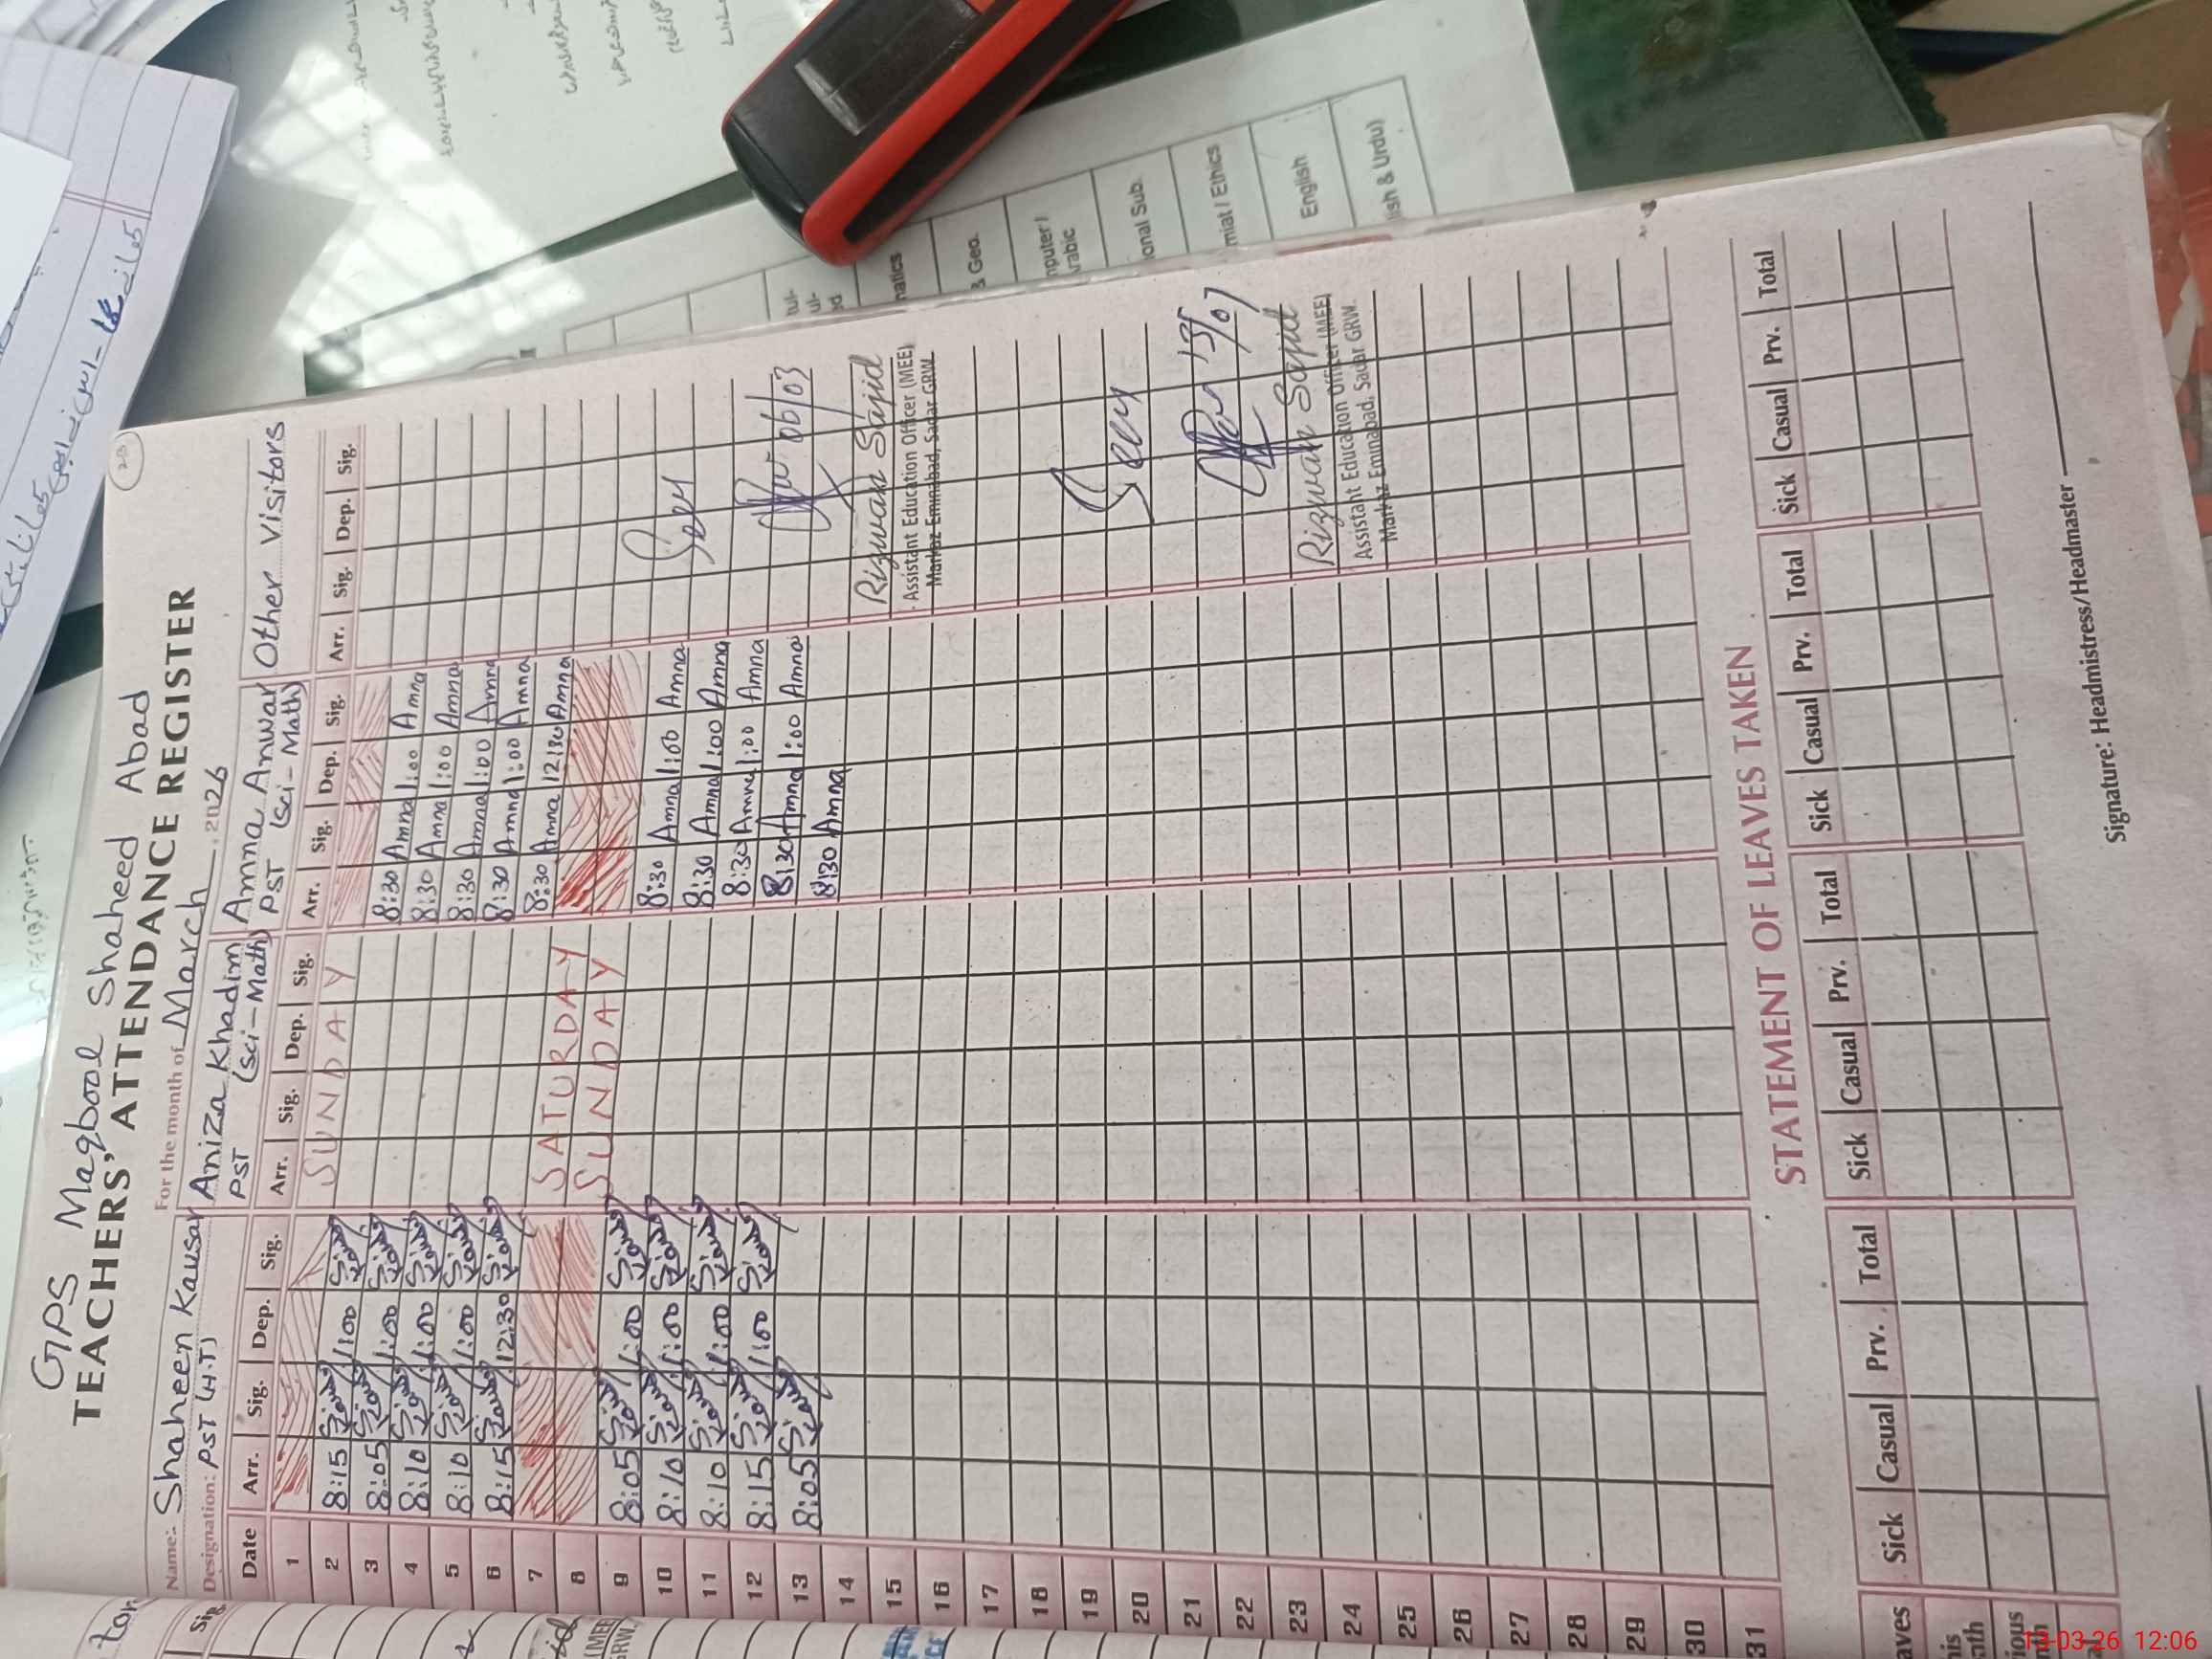 GPS Maqbool Shaheed Abad
TEACHERS' ATTENDANCE REGISTER
For the month of March 2026
Name: Shaheen Kausar Aniza Khadim Amna Anwar Other Visitors
Designation: PST (H.T) PST (Sci-Math) PST (Sci-Math)
Date Arr. Sig. Dep. Sig. Arr. Sig. Dep. Sig. Arr. Sig. Dep. Sig. Arr. Sig. Dep. Sig.
1 SUNDAY
2 8:15 1:00 8:30 Amna 1:00 Amna
3 8:05 1:00 8:30 Amna 1:00 Amna
4 8:10 1:00 8:30 Amna 1:00 Amna
5 8:10 1:00 8:30 Amna 1:00 Amna
6 8:15 12:30 8:30 Amna 12:30 Amna
7 SATURDAY
8 SUNDAY
9 8:05 1:00 8:30 Amna 1:00 Amna
10 8:10 1:00 8:30 Amna 1:00 Amna
11 8:10 1:00 8:30 Amna 1:00 Amna
12 8:15 1:00 8:30 Amna 1:00 Amna
13 8:05 8:30 Amna
06/03
Rizwan Sajid
Assistant Education Officer (MEE)
Markaz Eminabad, Sadar GRW.
14
15
16
17
18
19
20
21
22
23
Rizwan Sajid
Assistant Education Officer (MEE)
Markaz Eminabad, Sadar GRW.
24
25
26
27
28
29
30
31
STATEMENT OF LEAVES TAKEN
Sick Casual Prv. Total Sick Casual Prv. Total Sick Casual Prv. Total Sick Casual Prv. Total
Signature: Headmistress/Headmaster
& Geo.
onal Sub.
miat / Ethics
English
lish & Urdu)
13-03-26 12:06